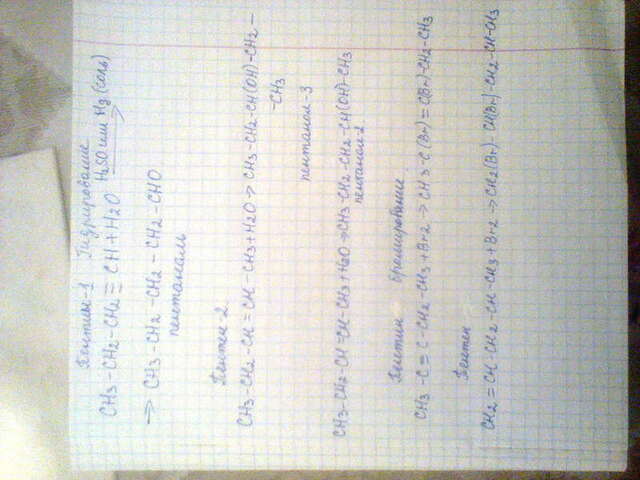 Пентин-1 Гидрирование
CH3-CH2-CH2≡CH+H2O H2SO или Hg (соль) →
→ CH3-CH2-CH2-CH2-CHO
пентаналь
Пентен-2
CH3-CH2-CH=CH-CH3+H2O→CH3-CH2-CH(OH)-CH2-
-CH3
пентанол-3
CH3-CH2-CH=CH-CH3+H2O→CH3-CH2-CH2-CH(OH)-CH3
пентанол-2
Пентин Бромирование
CH3-C≡C-CH2-CH3+Br2→CH3-C(Br)=C(Br)-CH2-CH3
Пентен
CH2=CH-CH2-CH-CH3+Br2→CH2(Br)-CH(Br)-CH2-CH-CH3